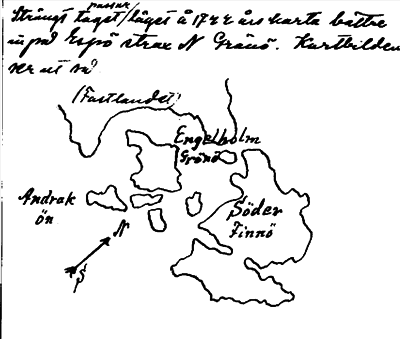 passar
Strängt taget / läget å 1744 års karta bättre
in på Espö strax N Grönö. Kartbilden
ser ut så
(Fastlandet)
Engelholm
Grönö
Andrak
ön
Söder
Finnö
N
S